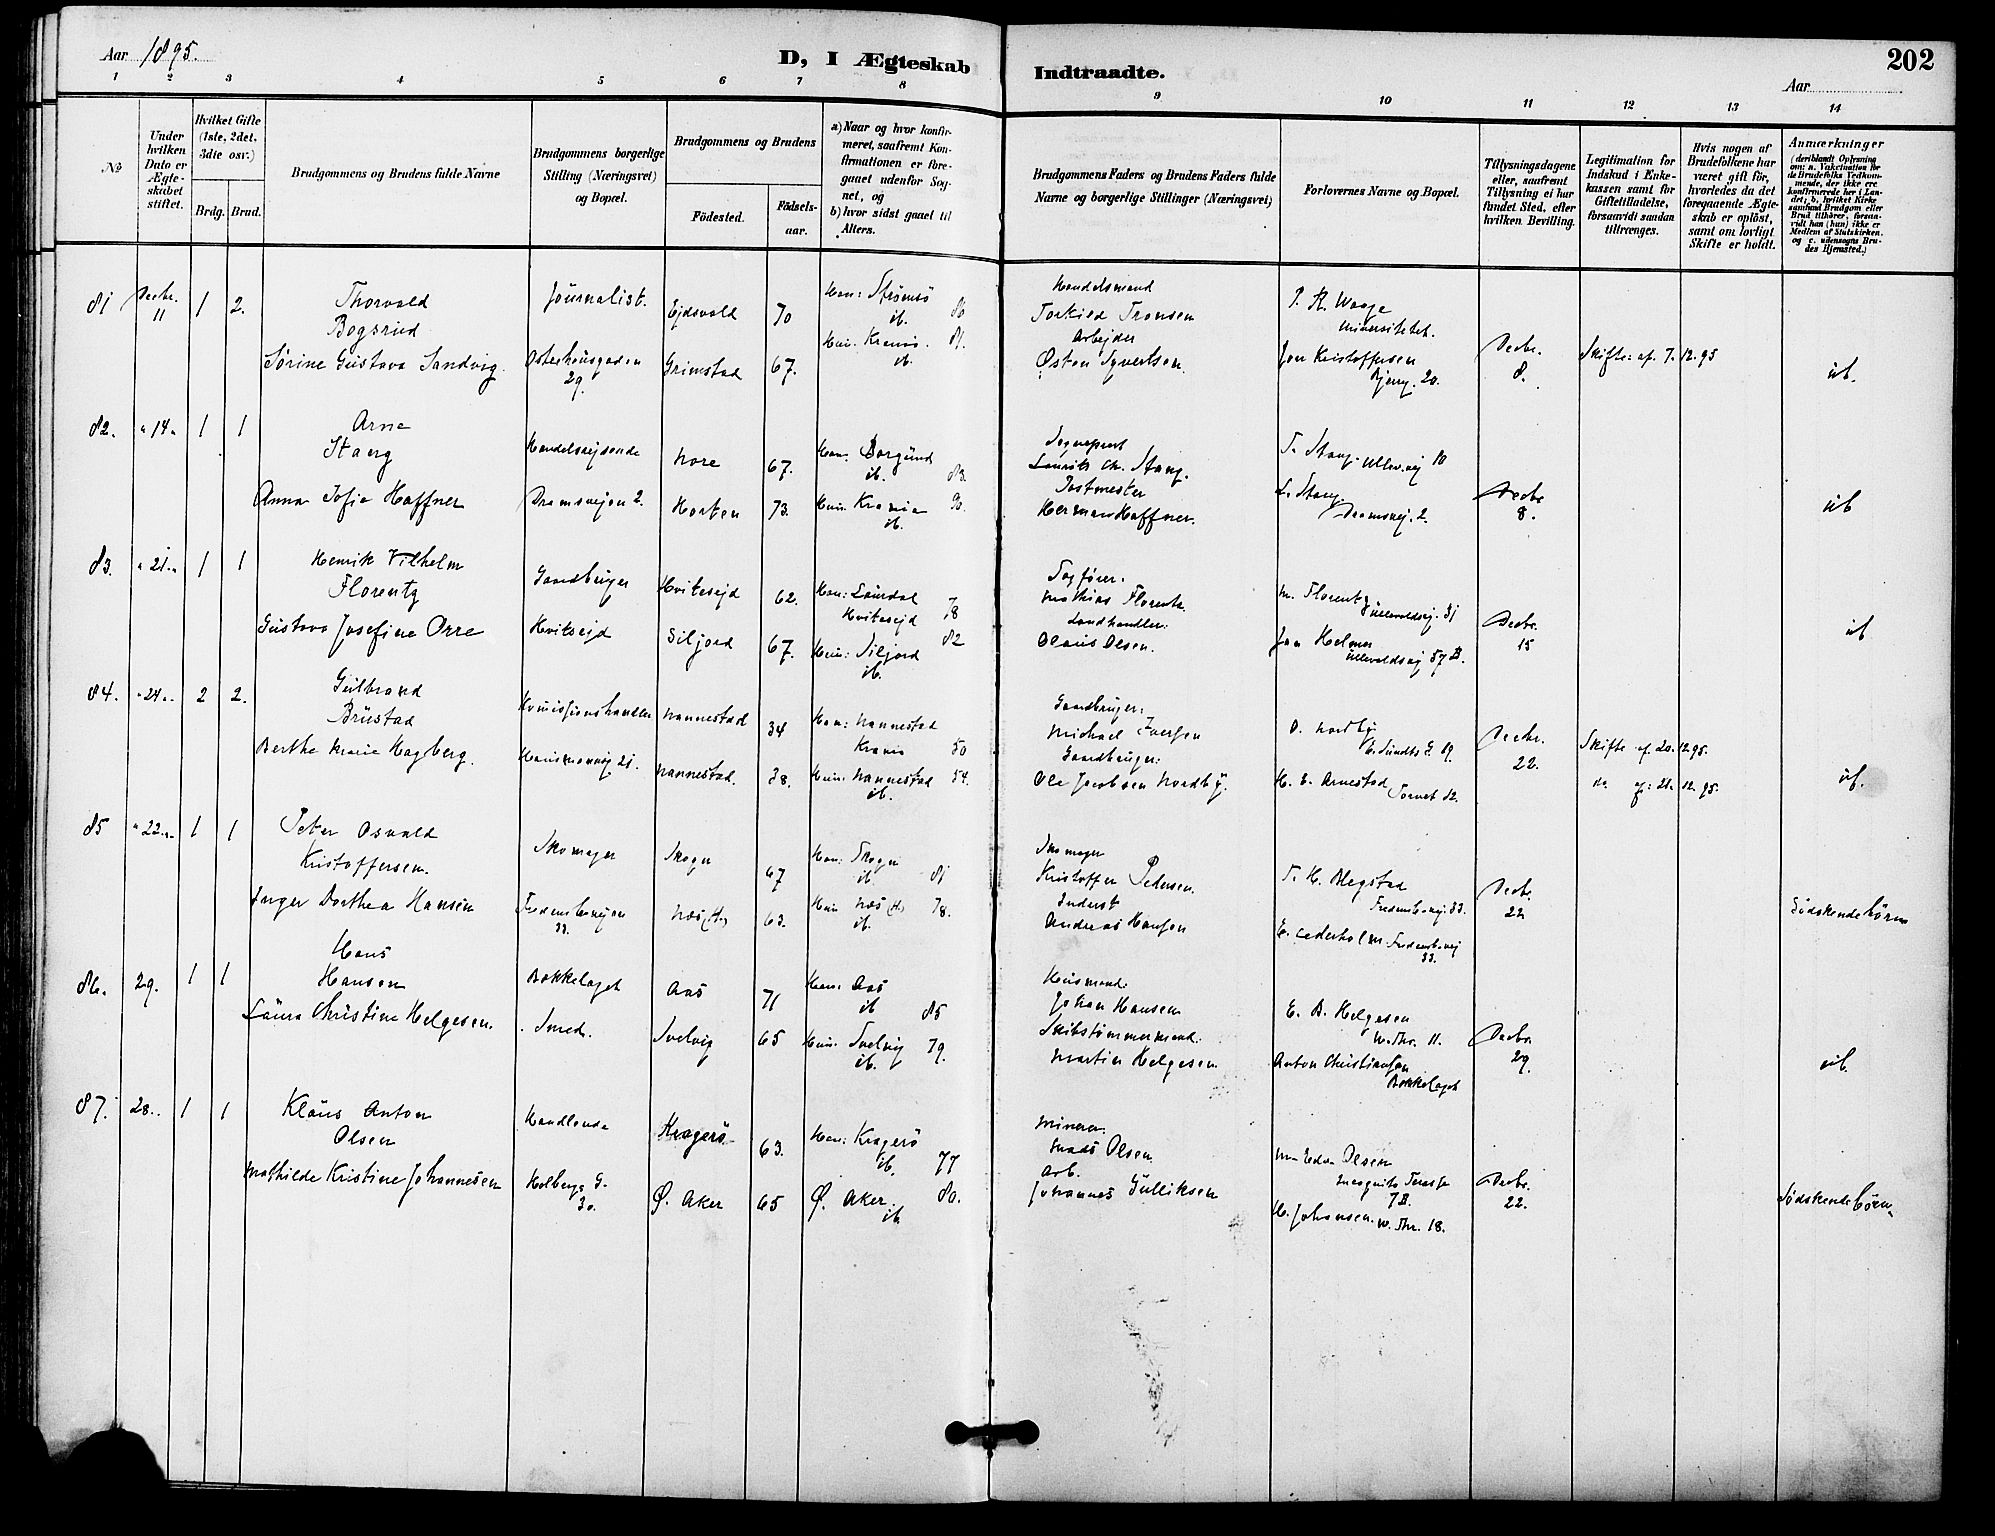 Aar 1895.
D, I Ægteskab Indtraadte.
202
Aar
1 2 3 4 5 6 7 8 9 10 11 12 13 14
No
Under hvilken Dato er Ægteskabet stiftet.
Hvilket Gifte (1ste, 2det, 3dte osv.)
Brdg. Brud.
Brudgommens og Brudens fulde Navne
Brudgommens borgerlige Stilling (Næringsvei) og Bopæl.
Brudgommens og Brudens
Födested.
Födselsaar.
a) Naar og hvor konfirmeret, saafremt Konfirmationen er foregaaet udenfor Sognet, og
b) hvor sidst gaaet til Alters.
Brudgommens Faders og Brudens Faders fulde Navne og borgerlige Stillinger (Næringsvei)
Forlovernes Navne og Bopæl.
Tillysningsdagene eller, saafremt Tillysning ei har fundet Sted, efter hvilken Bevilling.
Legitimation for Indskud i Enkekassen samt for Giftetilladelse, forsaavidt saadan tiltrænges.
Hvis nogen af Brudefolkene har været gift før, hvorledes da det foregaaende Ægteskab er opløst, samt om lovligt Skifte er holdt.
Anmærkninger
(deriblandt Oplysning om: a. Vakcination for de Brudefolks Vedkommende, der ikke ere konfirmerede her i Landet; b. hvilket Kirkesamfund Brudgom eller Brud tilhører, forsaavidt han (hun) ikke er Medlem af Statskirken, og c. udensogns Brudes Hjemsted.)
81 Decbr. 11 1 2.
Thorvald
Bogsrud
Sørine Gustava Sandvig.
Journalist.
Osterhausgaden
29.
Ejdsvold 70
Grimstad 67.
Han: Strømsö
ib. 86
Hun: Krania. 81.
ib
Handelsmand
Torkild Tronsen
Arbejder
Østen Syvertsen.
P. A. Waage
Universitetet.
Jon Kristoffersen
Bjerg. 20.
Decbr.
8.
Skifte: af. 7. 12. 95
ub.
82. " 14 " 1 1
Arne
Stang
Anna Sofie Haffner
Handelsrejsende
Dramsvejen 2.
Nore 67.
Horten 73.
Han: Borgund
ib. 83.
Hun: Krania 90.
ib.
Sogneprest
Laurits Chr. Stang.
Postmester
Herman Haffner.
T. Stang. Ullev.vej 10
L. Stang.
Dramsvej. 2.
Decbr
8.
ub
83. " 21 " 1 1
Henrik Vilhelm
Florentz
Gustava Josefine Orre
Gaardbruger
Hvitesejd
Hvitesejd 62.
Siljord 67.
Han: Laurdal
Hvitesejd 78
Hun: Siljord 82
ib.
Sagfører.
Mathias Florentz
Landhandler.
Olaus Olsen.
M. Florentz
Ullevoldsvej. 31
Jon Helmer
Ullevoldsvej 57 B.
Decbr.
15
ub
84. " 24 " 2 2.
Gulbrand
Brustad
Berthe Marie Hagberg.
Komissionshandler
Hausmannsg 21.
Nannestad 34
Nannestad. 38.
Han: Nannestad
Krania 50
Hun: Nannestad 54.
ib.
Gaardbruger:
Michael Iversen
Gaardbruger:
Ole Jacobsen Nordby.
O. Nordby
E. Sundts G. 19.
H. E. Arnestad Torvet 82.
Decbr.
22.
Skifte af. 20. 12. 95.
Do af: 21. 12. 95.
ub.
85 " 22 " 1 1
Peter Osvald
Kristoffersen.
Inger Dorthea Hansen
Skomager
Fredensborgvejen
33.
Skoger 67
Næs (H.) 63.
Han: Skoger
ib. 81
Hun Næs (H.) 78.
ib.
Skomager
Kristoffer Pedersen
Inderst
Andreas Hansen
T. H. Blegstad
Fredensborgvej. 33.
E. Cederholm. Fredensborgvej
33.
Decbr.
22
Södskendebörn
86. 29. 1 1
Hans
Hansen
Laura Christine Helgesen.
Bækkelaget
Smed.
Aas 71
Svelvig 65
Han: Aas
ib 85
Hun: Svelvig 79.
ib.
Husmand.
Johan Hansen
Skibstømmermand.
Martin Helgesen
E. B. Helgesen
W. Thr. 11.
Anton Christiansen
Bækkelaget
Decbr.
29.
ub.
87. 28. 1 1
Klaus Anton
Olsen
Mathilde Kristine Johannesen
Handlende
Holbergs G.
30.
Kragerö 63.
Ø. Aker 65
Han: Kragerö
ib. 77
Ø. Aker. 80.
ib
Minerer.
Mads Olsen.
Arb.
Johannes Gulliksen
M. Edv. Olsen
Incognito Terasse
7B.
H. Johansen. W. Thr. 18.
Decbr.
22.
Södskendebörn